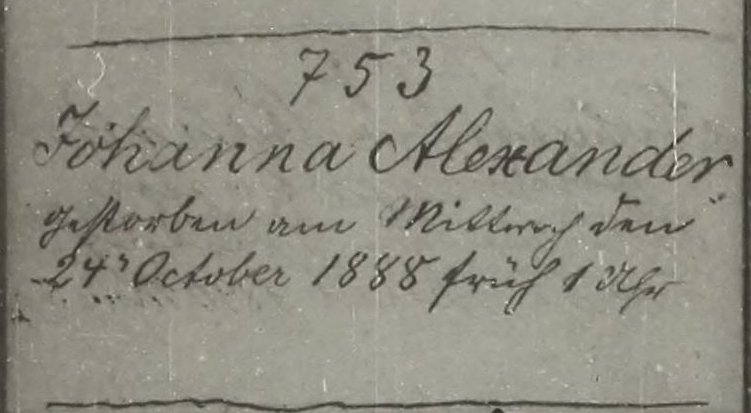 753
Johanna Alexander
gestorben am Mittwoch den
24t October 1888 früh 1 Uhr